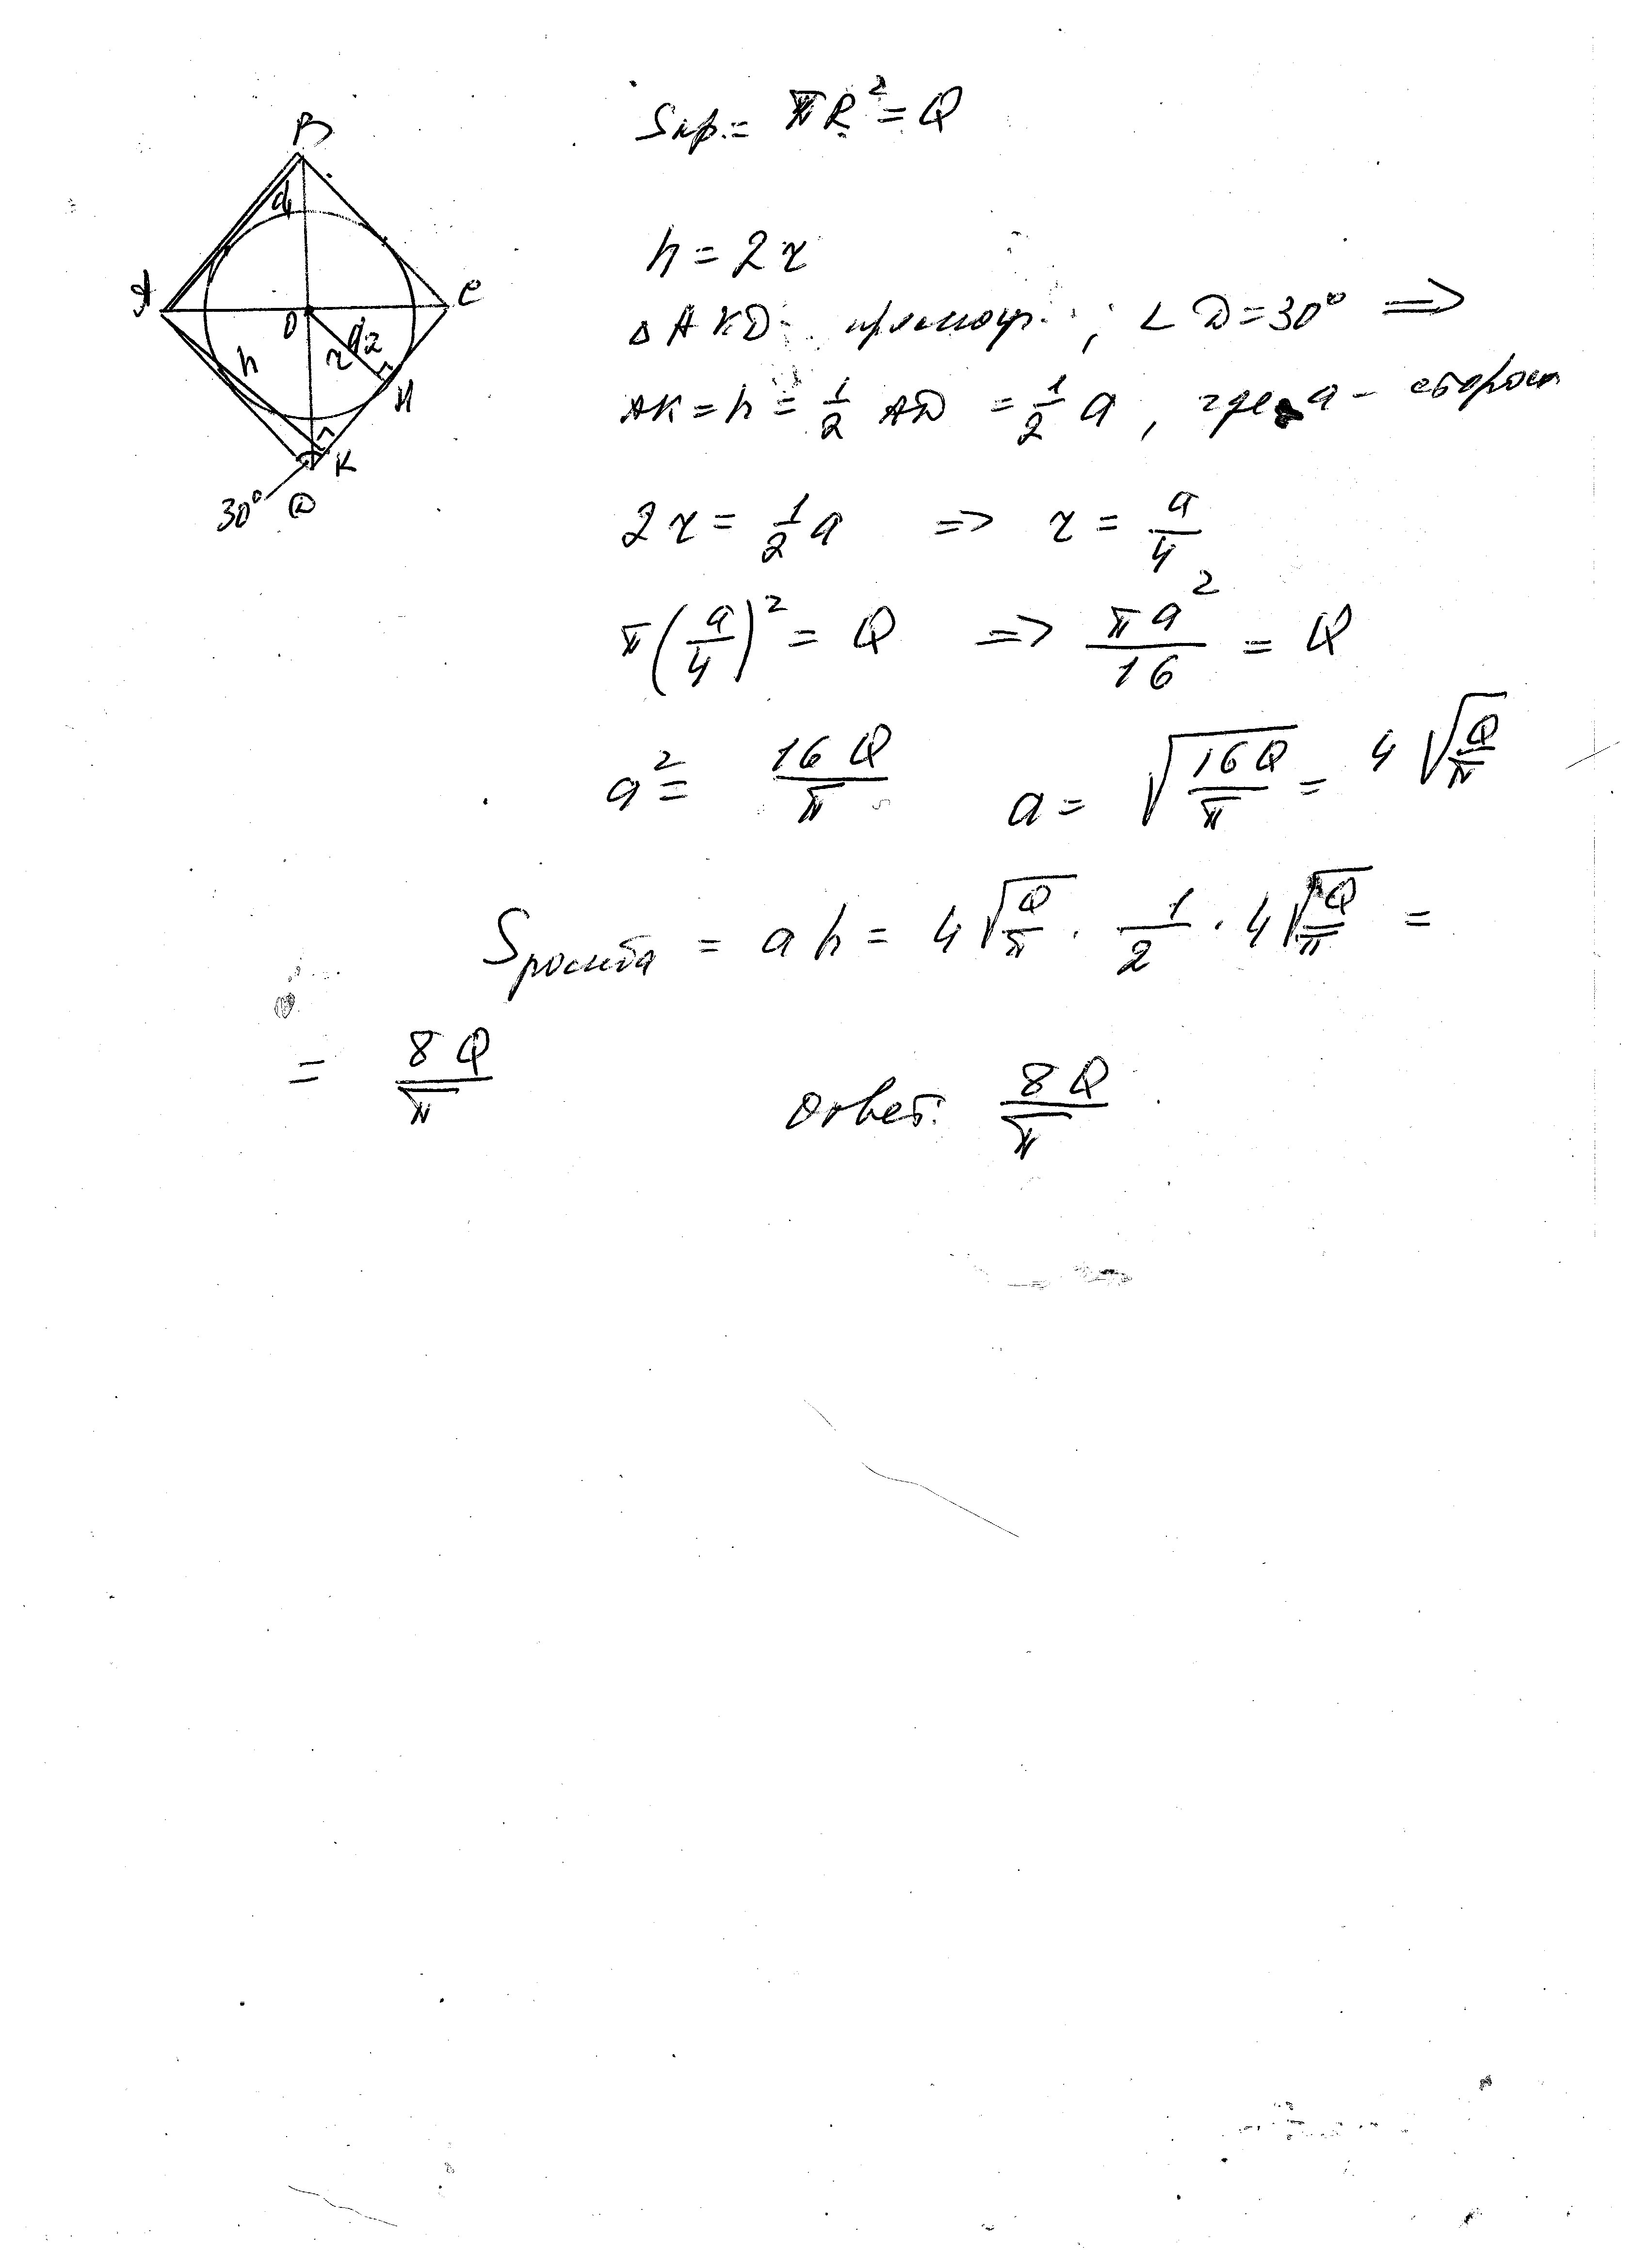 B
d₁
A
C
O
r
d₂
h
H
K
30°
D
Sкр. = πR² = Q
h = 2r
Δ AKD - прямоуг. ; ∠ D = 30° ⟹
AK = h = 1/2 AD = 1/2 a , где a - сторона
2r = 1/2 a => r = a/4
π(a/4)² = Q => πa²/16 = Q
a² = 16Q/π a = √(16Q/π) = 4√(Q/π)
Sромба = ah = 4√(Q/π) · 1/2 · 4√(Q/π) =
= 8Q/π Ответ: 8Q/π